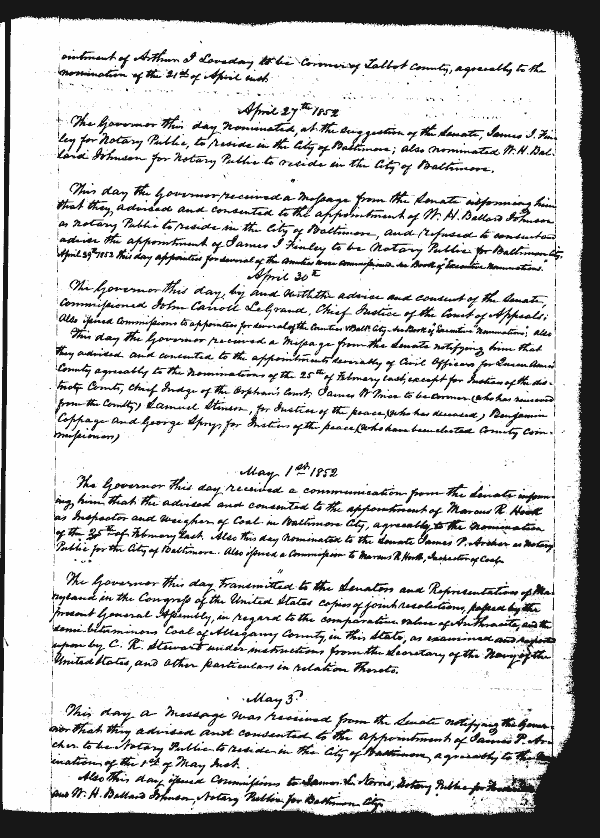 ointment of Arthur I Loveday to be Coroner of Talbot County, agreeably to the
nomination of the 21st of April inst
April 27th 1852
The Governor this day nominated, at the suggestion of the Senate, James I. Fin-
ley for Notary Public, to reside in the City of Baltimore; also nominated W. H. Bal-
lard Johnson for Notary Public to reside in the City of Baltimore.
This day the Governor received a Message from the Senate informing him
that they advised and consented to the appointment of W. H. Ballard Johnson
as Notary Public to reside in the City of Baltimore, and refused to consent and
advise the appointment of James I Finley to be Notary Public for Baltimore City.
April 29th 1852 this day appointees for several of the Counties were commissioned. See Book of Executive Nominations.
April 30th
The Governor this day, by and with the advice and consent of the Senate,
commissioned John Carroll LeGrand, Chief Justice of the Court of Appeals;
Also issued Commissions to appointees for several of the Counties & Balt. City. See Book of "Executive Nominations", also
This day the Governor received a Message from the Senate notifying him that
they advised and consented to the appointments severally of Civil Officers for Queen Anne's
County agreeably to the Nominations of the 25th of February last, except for Justices of the dis-
tricts Courts, Chief Judge of the Orphan's Court, James W Price to be Coroner, (who has removed
from the County) Samuel Stinson, for Justice of the peace, (who has deceased,) Benjamin
Coppage and George Sprys, for Justices of the peace, (who have been elected County Com-
missioners)
May 1st 1852
The Governor this day received a communication from the Senate inform-
ing him that the advised and consented to the appointment of Marcus R. Hook
as Inspector and weigher of Coal in Baltimore City, agreeably to the Nomination
of the 25th of February last. Also this day nominated to the Senate James P. Archer as Notary
Public for the City of Baltimore. Also issued a Commission to Marcus R. Hook, Inspector of Coal.
The Governor this day transmitted to the Senators and Representatives of Ma-
ryland in the Congress of the United States copies of joint resolutions, passed by the
present General Assembly, in regard to the comparative value of Anthracite, and the
semi-bituminous Coal of Allegany County, in this State, as examined and reported
upon by C. R. Stewart under instructions from the Secretary of the Navy of the
United States, and other particulars in relation thereto.
May 3d
This day a Message was received from the Senate notifying the Gover-
nor that they advised and consented to the appointment of James P. Ar-
cher to be Notary Public to reside in the City of Baltimore, agreeably to the
ination of the 1st of May Inst.
Also this day issued Commissions to James L. Norris, Notary Public for
and W. H. Ballard Johnson, Notary Public for Baltimore City.